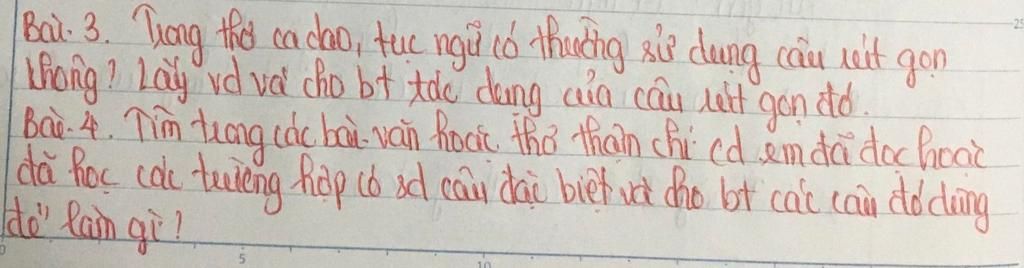 Bài. 3. Trong thơ ca dao, tục ngữ có thường sử dụng câu rút gọn
không? Lấy vd và cho bt tác dụng của câu rút gọn đó.
Bài. 4. Tìm trong các bài văn hoặc thơ thậm chí cd em đã đọc hoặc
đã học các trường hợp có sd câu đặc biệt và cho bt các câu đó dùng
để làm gì?
5
10
25